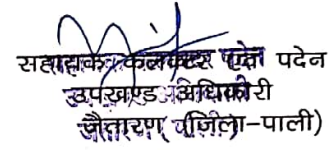 सहायक कलक्टर एवं पदेन
उपखण्ड अधिकारी
जैतारण (जिला-पाली)